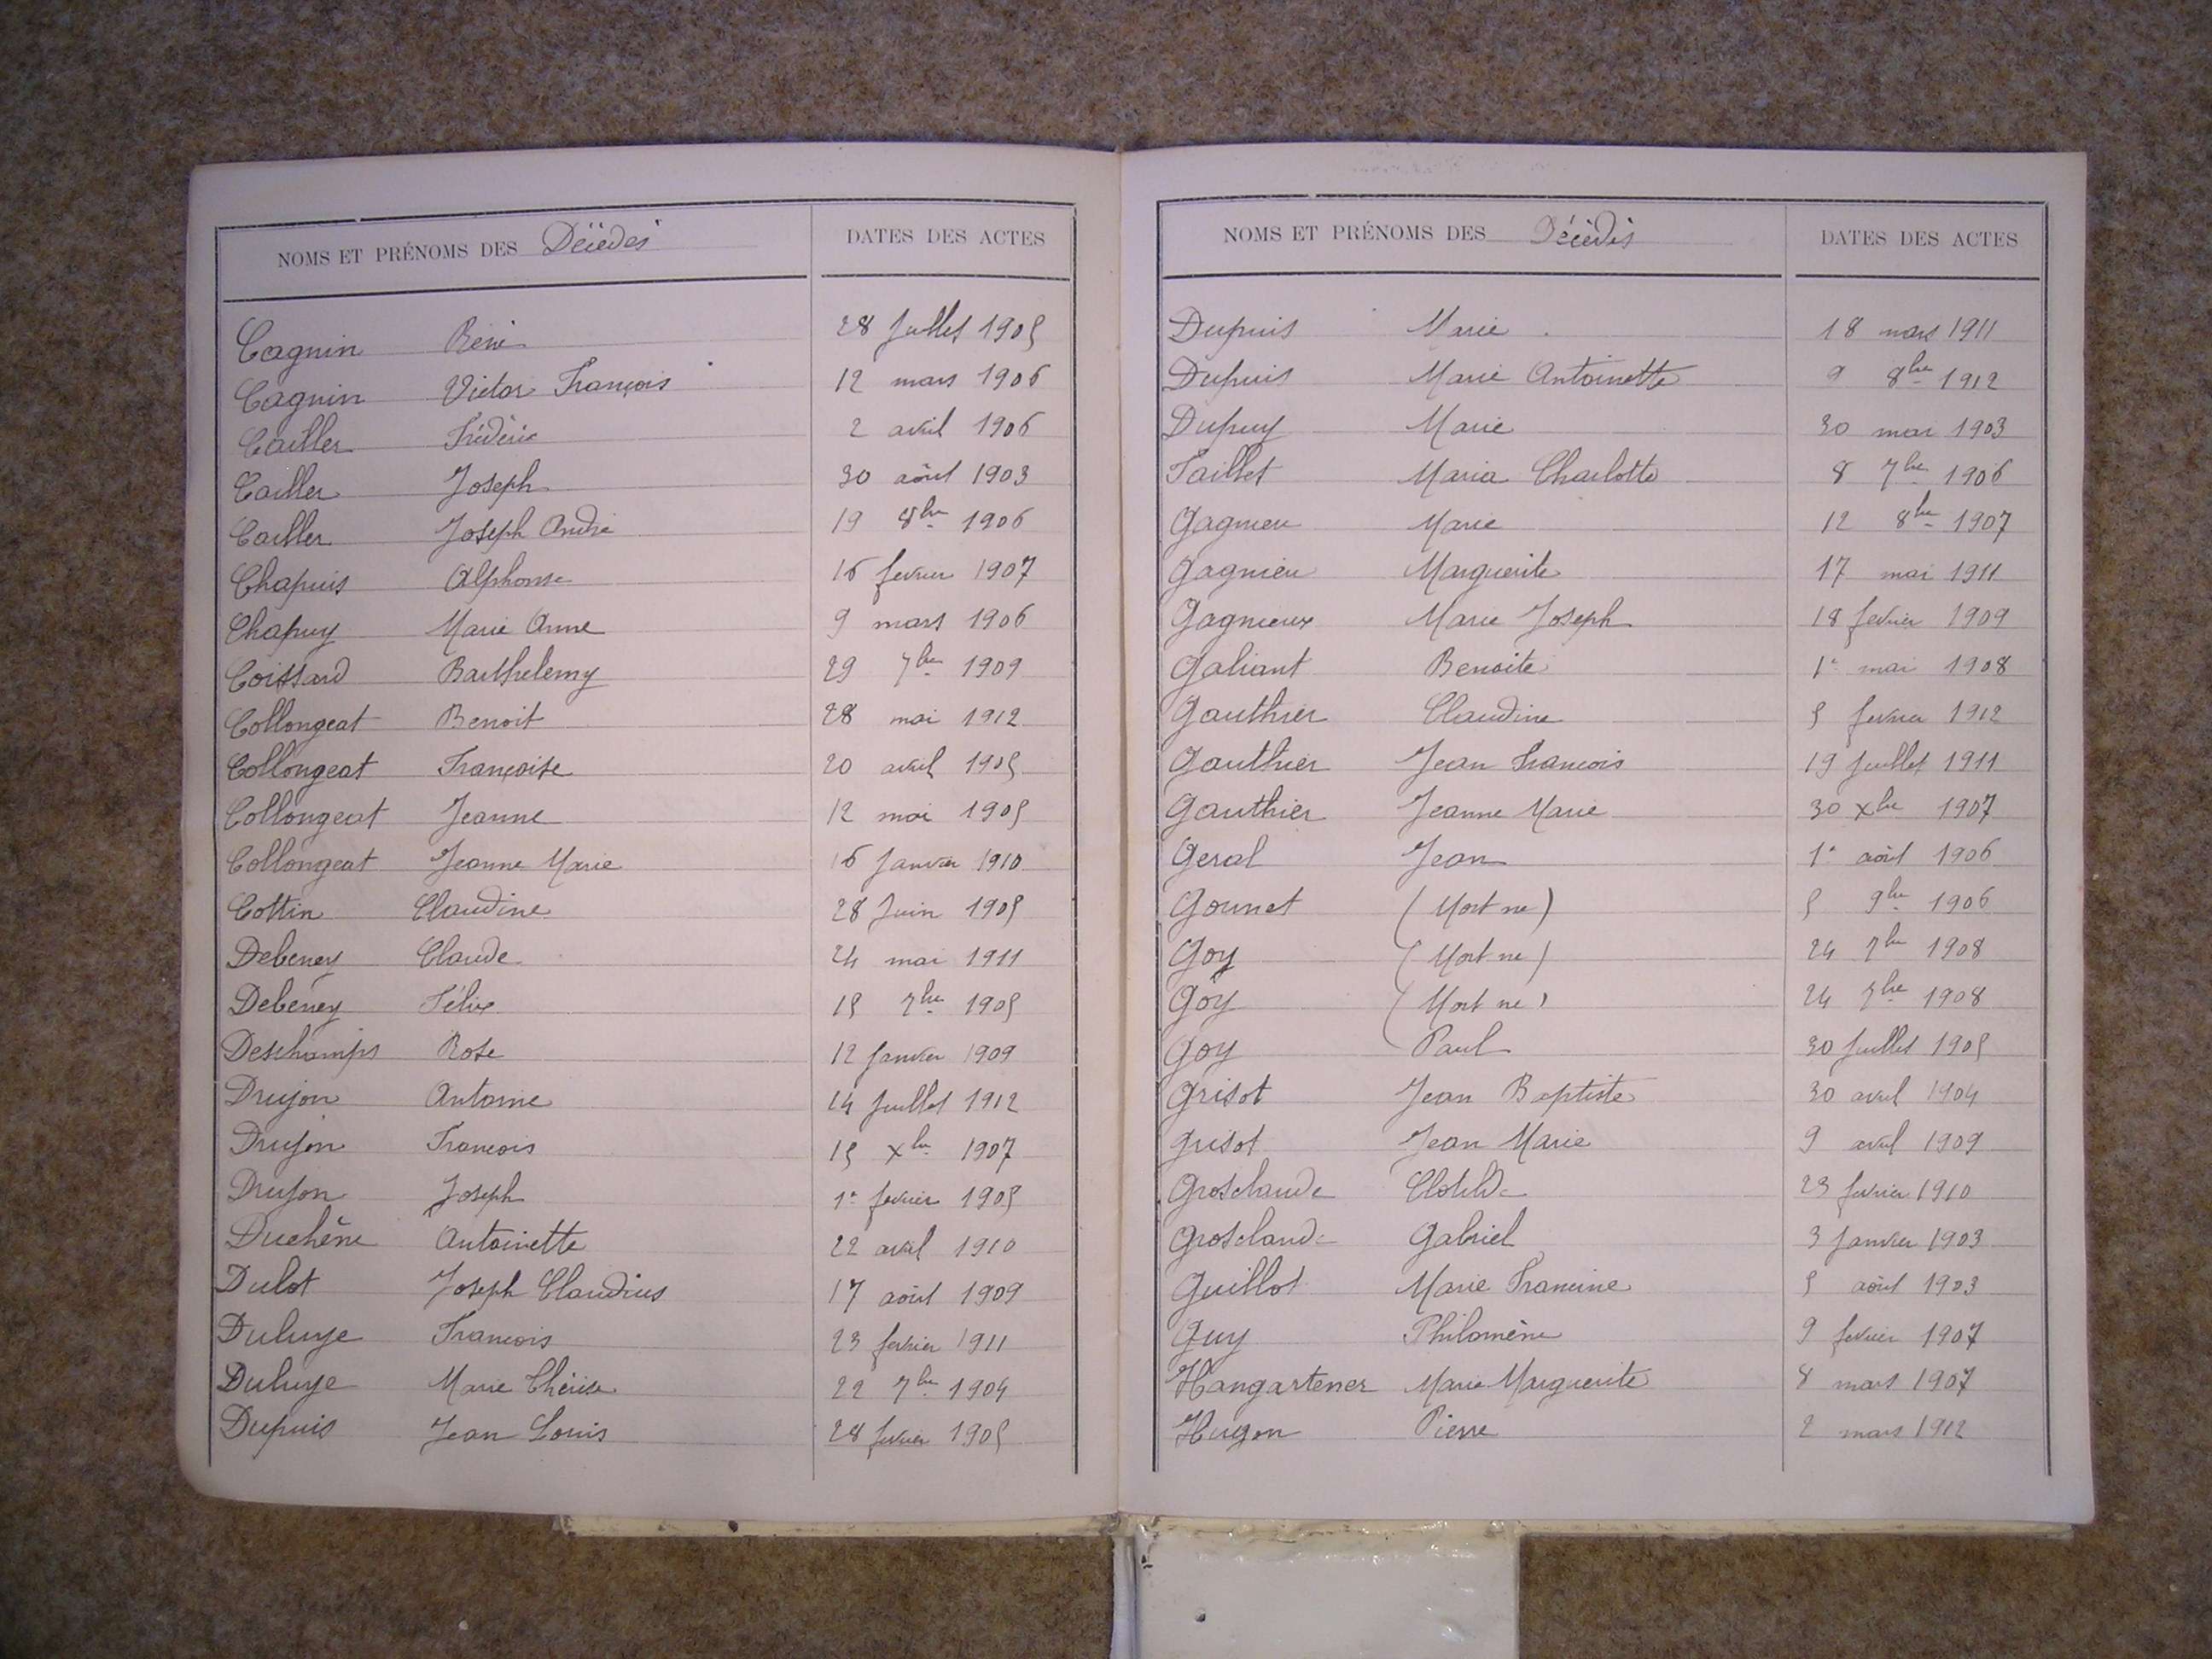 NOMS ET PRÉNOMS DES Décédés DATES DES ACTES
Cagnin René 28 Juillet 1905
Cagnin Victor François 12 mars 1906
Cailler Frédéric 2 avril 1906
Cailler Joseph 30 août 1903
Cailler Joseph André 19 8bre 1906
Chapuis Alphonse 16 fevrier 1907
Chapuy Marie Anne 9 mars 1906
Coissard Barthelemy 29 7bre 1909
Collongeat Benoit 28 mai 1912
Collongeat Françoise 20 avril 1905
Collongeat Jeanne 12 mai 1905
Collongeat Jeanne Marie 16 Janvier 1910
Cottin Claudine 28 Juin 1905
Debeney Claude 24 mai 1911
Debeney Félix 15 7bre 1905
Deschamps Rose 12 Janvier 1909
Drujon Antoine 14 Juillet 1912
Drujon François 15 xbre 1907
Drujon Joseph 1er fevrier 1905
Duchêne Antoinette 22 avril 1910
Dulot Joseph Claudius 17 août 1909
Duluye François 23 fevrier 1911
Duluye Marie Thérèse 22 7bre 1904
Dupuis Jean Louis 28 fevrier 1905
NOMS ET PRÉNOMS DES Décédés DATES DES ACTES
Dupuis Marie 18 mars 1911
Dupuis Marie Antoinette 9 8bre 1912
Dupuy Marie 30 mai 1903
Faillet Maria Charlotte 8 7bre 1906
Gagnieu Marie 12 8bre 1907
Gagnieu Marguerite 17 mai 1911
Gagnieux Marie Joseph 18 fevrier 1909
Galiant Benoite 1er mai 1908
Gauthier Claudine 5 fevrier 1912
Gauthier Jean François 19 Juillet 1911
Gauthier Jeanne Marie 30 xbre 1907
Geral Jean 1er août 1906
Gounet (Mort né) 5 9bre 1906
Goy (Mort né) 24 7bre 1908
Goy (Mort né) 24 7bre 1908
Goy Paul 30 Juillet 1905
Grisot Jean Baptiste 30 avril 1904
Grisot Jean Marie 9 avril 1909
Grosclaude Clotilde 23 fevrier 1910
Grosclaude Gabriel 3 Janvier 1903
Guillot Marie Francine 5 août 1903
Guy Philomène 9 fevrier 1907
Hangartener Marie Marguerite 8 mars 1907
Hugon Pierre 2 mars 1912